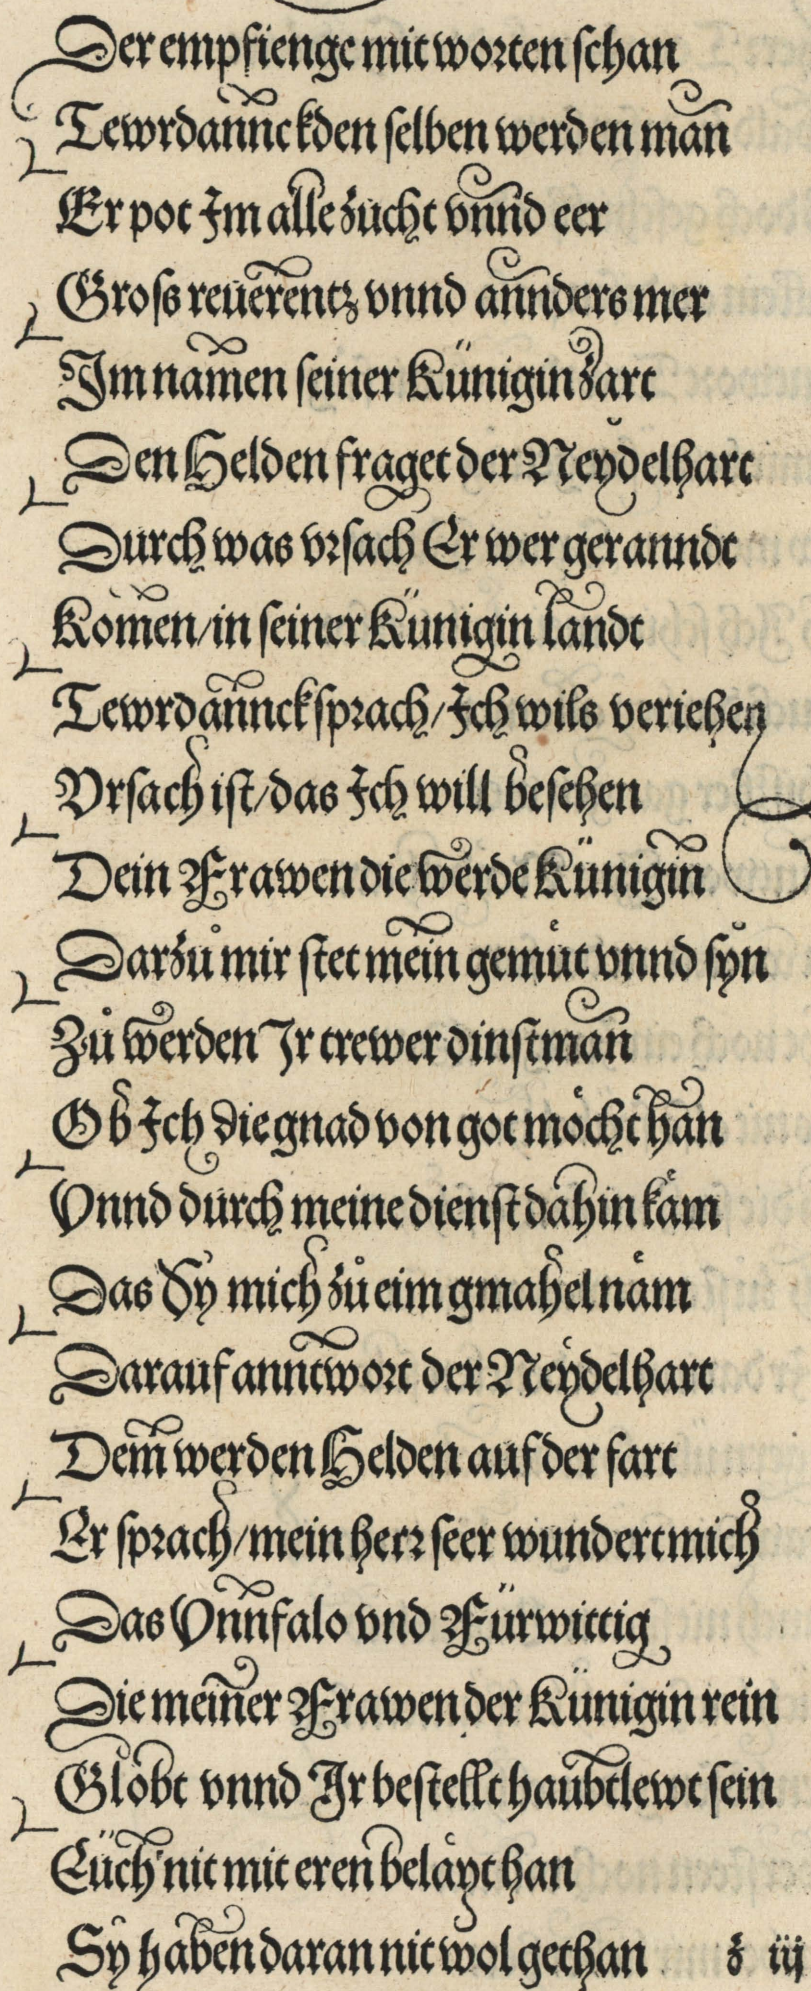 Der empfienge mit worten schan
Tewrdannckden selben werden man
Er pot Im alle zucht vnnd eer
Gross reuerentz vnnd annders mer
Im namen seiner Künigin zart
Den Helden fraget der Neydelhart
Durch was vrsach Er wer geranndt
Komen/in seiner Künigin landt
Tewrdannck sprach/Ich wils veriehen
Vrsach ist/das Ich will besehen
Dein Frawen die werde Künigin
Darzů mir stet mein gemüt vnnd syn
Zů werden Ir trewer dinstman
Ob Ich die gnad von got möcht han
Vnnd durch meine dienst dahin kåm
Das Sy mich zů eim gmahel nåm
Darauf anntwort der Neydelhart
Dem werden Helden auf der fart
Er sprach/mein herr seer wundert mich
Das Vnnfalo vnd Fürwittig
Die meiner Frawen der Künigin rein
Globt vnnd Ir bestellt haubtlewt sein
Eüch nit mit eren belåyt han
Sy haben daran nit wol gethan z iij